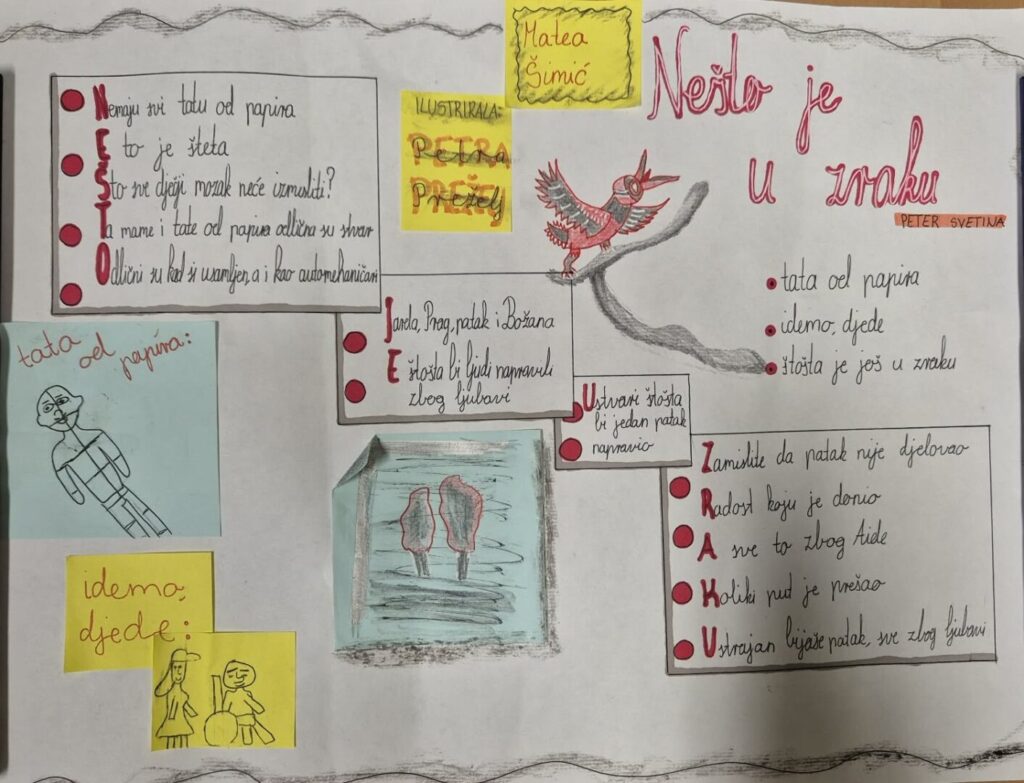 Matea
Šimić
Nešto je
u zraku
PETER SVETINA
ILUSTRIRALA:
PETRA
PREŽELJ
Nemaju svi tatu od papira
E to je šteta
Što sve dječji mozak neće izmisliti?
Ta mame i tate od papira odlična su stvar
Odlični su kad si usamljen, a i kao automehaničari
Jarda, Prag, patak i Božana
E štošta bi ljudi napravili
zbog ljubavi
Ustvari štošta
bi jedan patak
napravio
Zamislite da patak nije djelovao
Radost koju je donio
A sve to zbog Aide
Koliki put je prešao
Ustrajan bijaše patak, sve zbog ljubavi
• tata od papira
• idemo, djede
• štošta je još u zraku
tata od papira:
idemo,
djede: